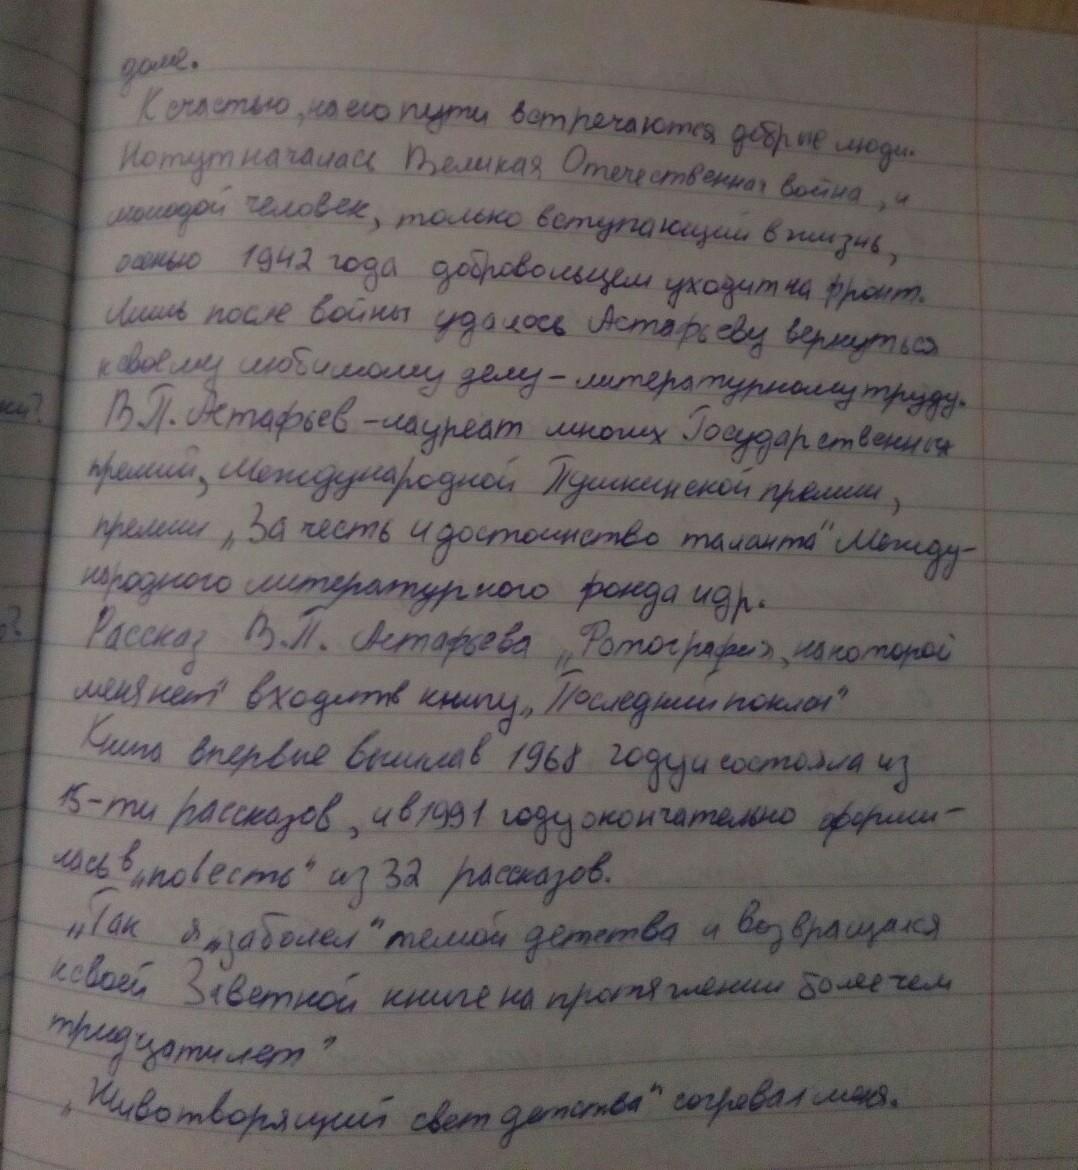 доме.
К счастью, на его пути встречаются добрые люди.
Но тут началась Великая Отечественная война, и
молодой человек, только вступающий в жизнь,
осенью 1942 года добровольцем уходит на фронт.
Лишь после войны удалось Астафьеву вернуться
к своему любимому делу – литературному труду.
В.П. Астафьев – лауреат многих Государственных
премий, Международной Пушкинской премии,
премии „За честь и достоинство таланта" Между-
народного литературного фонда и др.
Рассказ В.П. Астафьева „Фотография, на которой
меня нет" входит в книгу „Последний поклон"
Книга впервые вышла в 1968 году и состояла из
15-ти рассказов, и в 1991 году окончательно оформи-
лась в „повесть" из 32 рассказов.
„Так я „заболел" темой детства и возвращался
к своей Заветной книге на протяжении более чем
тридцати лет"
„Животворящий свет детства" согревал меня.